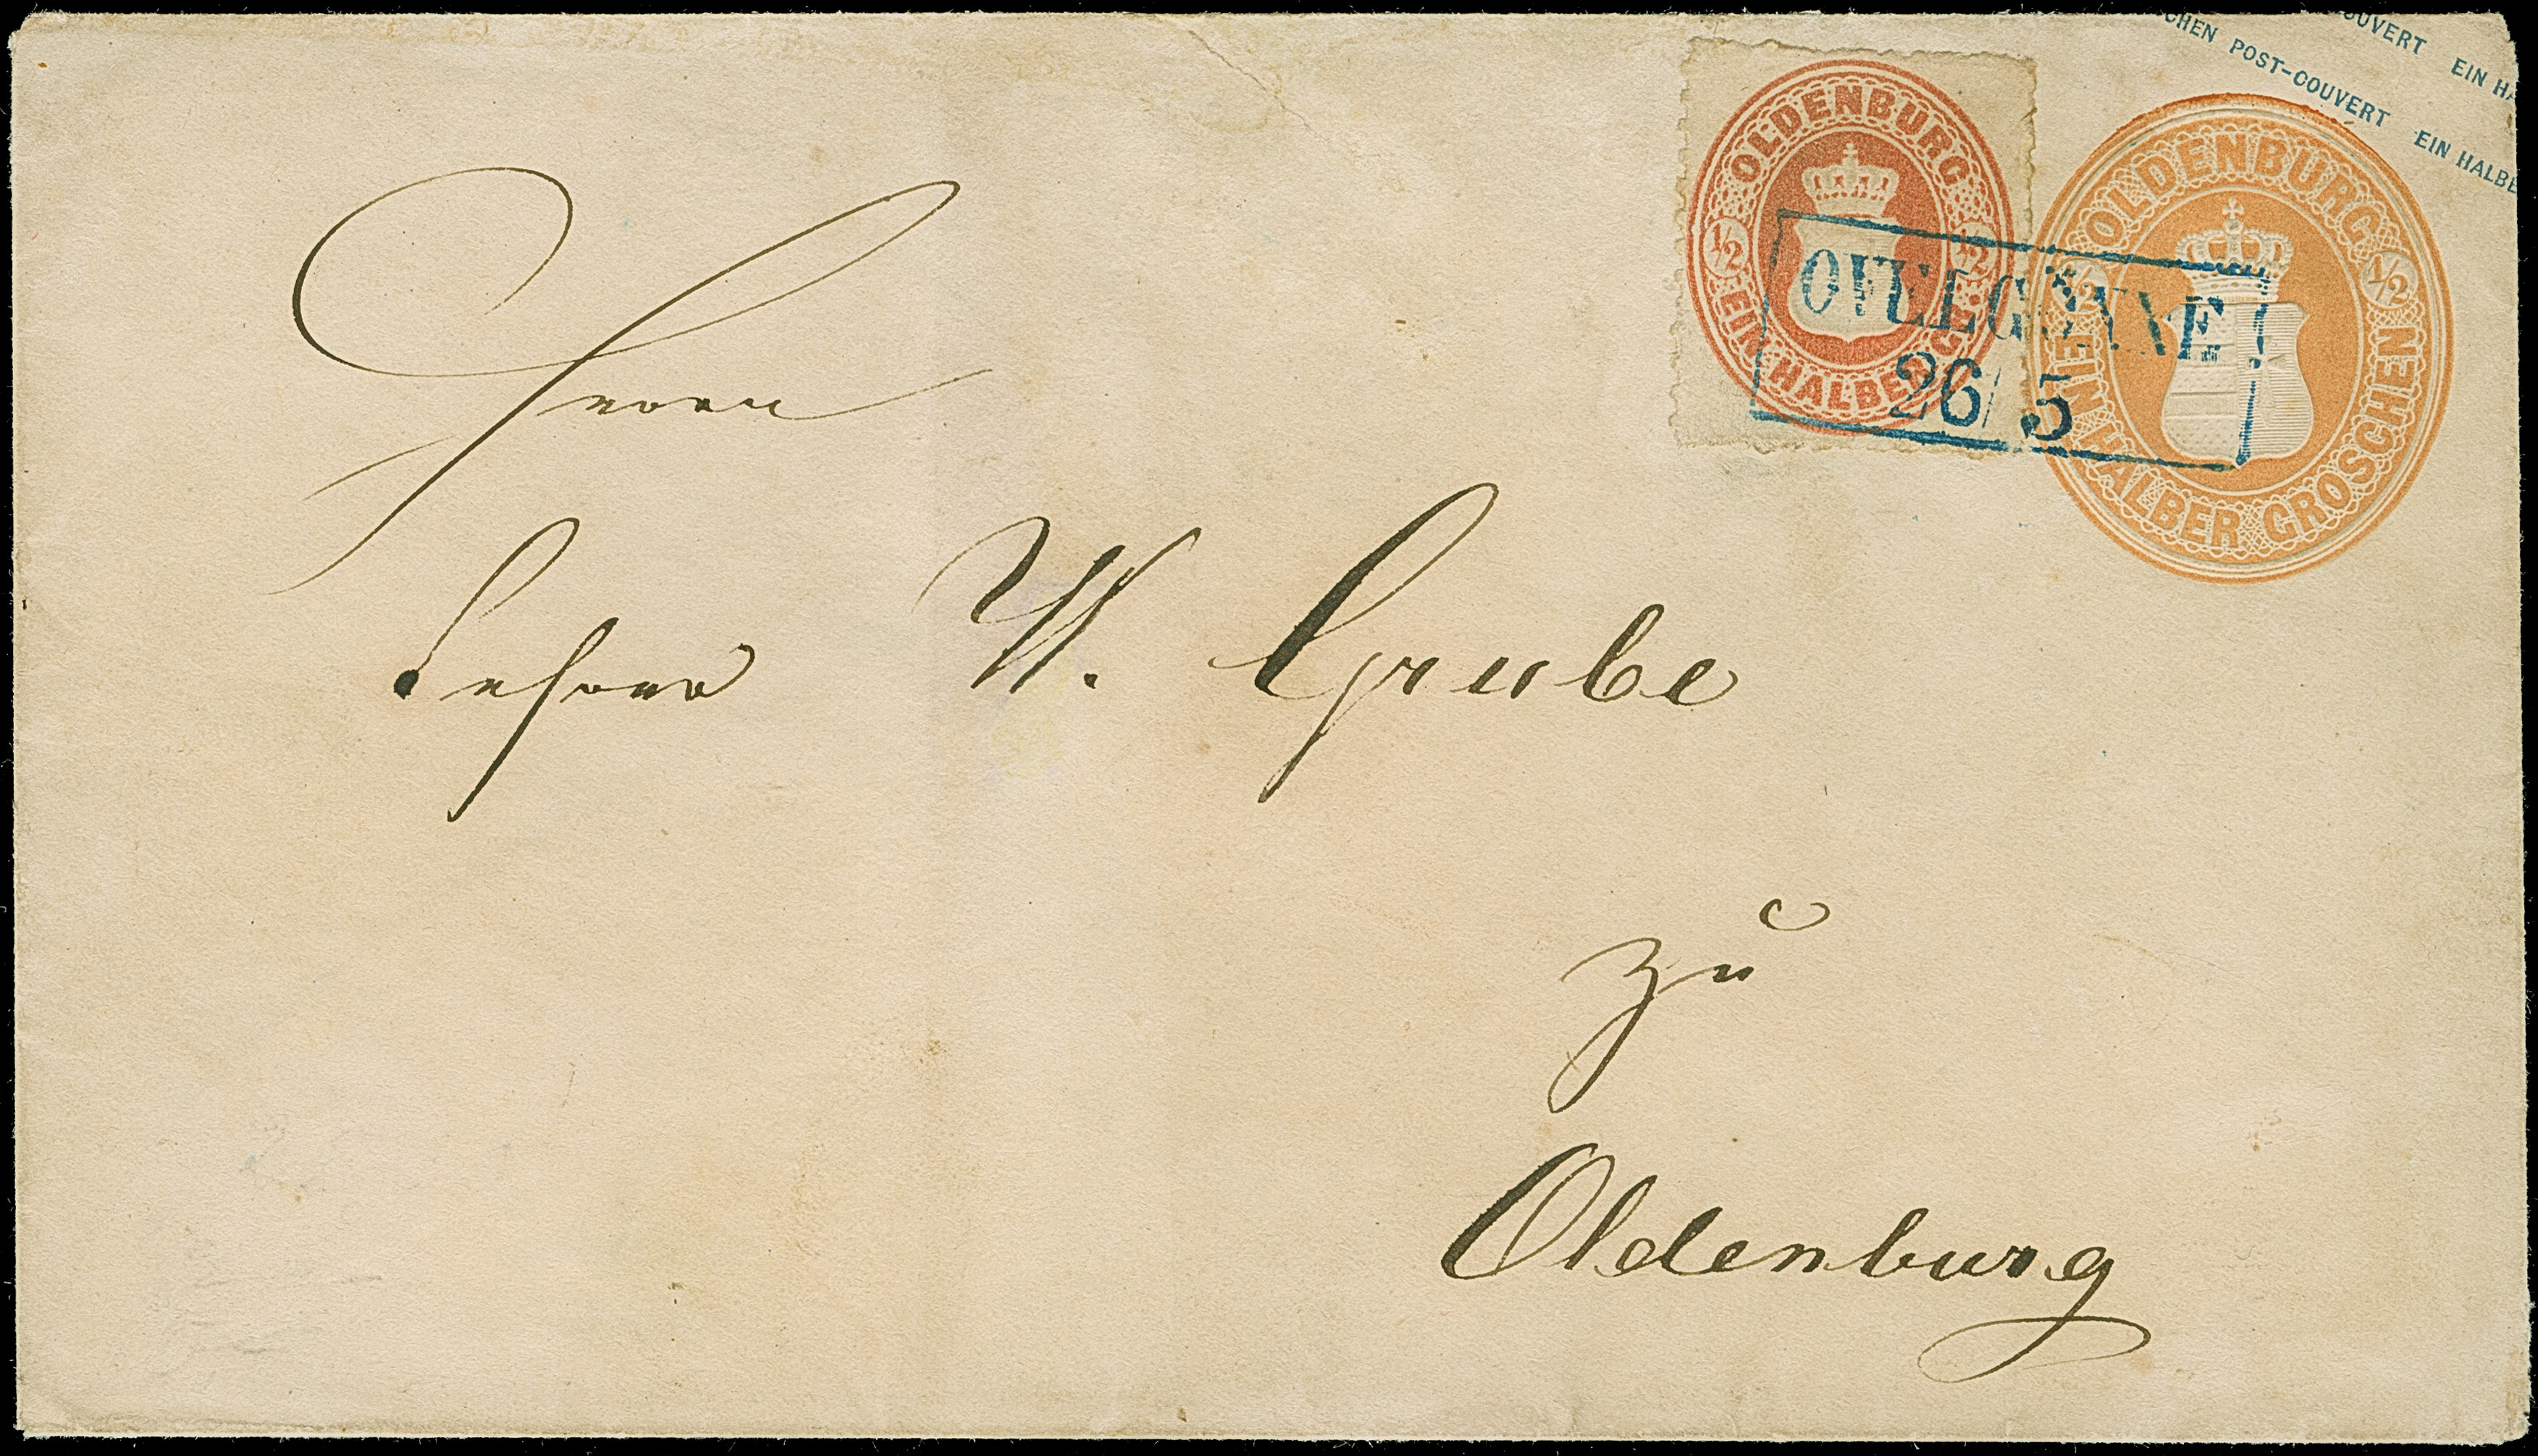 CHEN POST-COUVERT EIN HALBE
OUVERT EIN HA
OLDENBURG
½ ½
EIN HALBER GR.
OLDENBURG
½ ½
EIN HALBER GROSCHEN
OVELGÖNNE
26/5
Herrn
Lehrer W. Grube
zu
Oldenburg